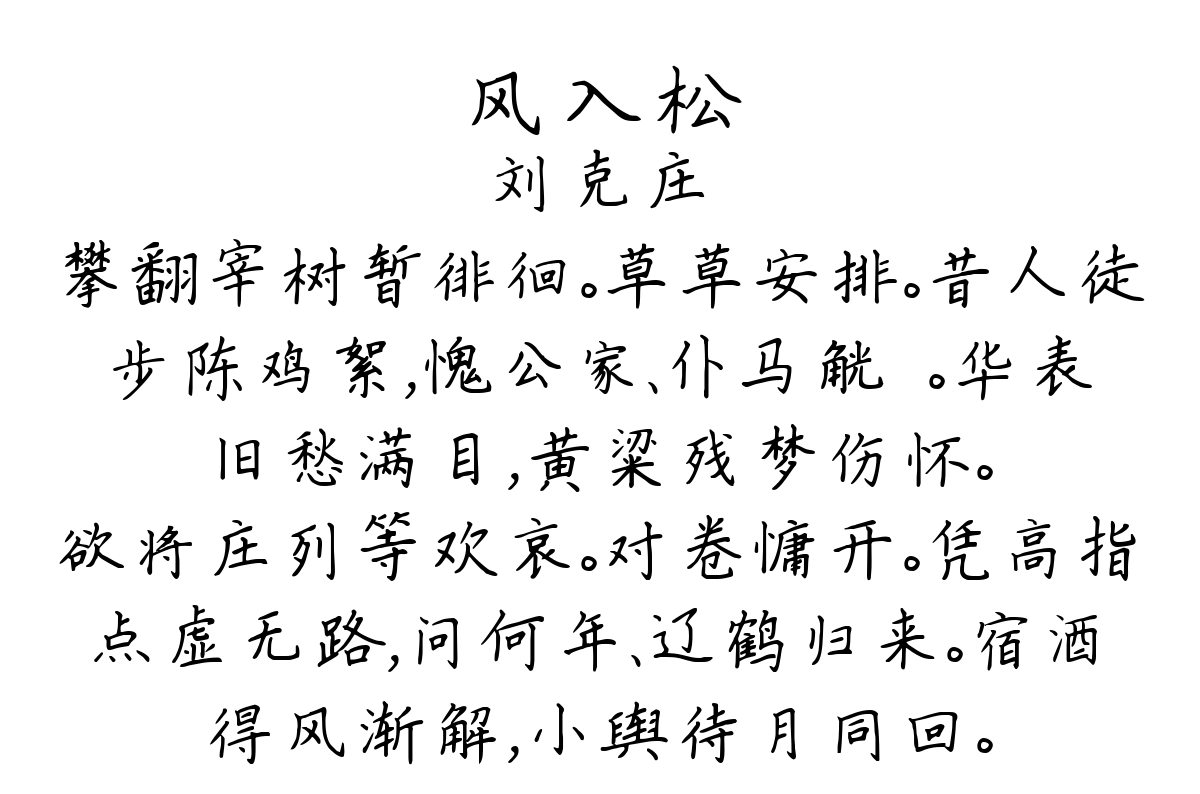 风入松
刘克庄
攀翻宰树暂徘徊。草草安排。昔人徒
步陈鸡絮,愧公家、仆马觥 。华表
旧愁满目,黄粱残梦伤怀。
欲将庄列等欢哀。对卷慵开。凭高指
点虚无路,问何年、辽鹤归来。宿酒
得风渐解,小舆待月同回。